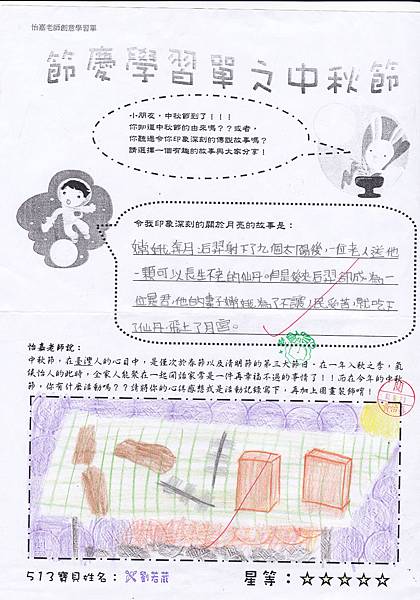 怡嘉老師創意學習單
節慶學習單之中秋節
小朋友，中秋節到了！！！
你知道中秋節的由來嗎？？或者，
你聽過令你印象深刻的傳說故事嗎？
請選擇一個有趣的故事與大家分享！
令我印象深刻的關於月亮的故事是：
嫦娥奔月：后羿射下了九個太陽後，一位老人送他
一顆可以長生不老的仙丹。但是後來后羿卻成為一
位暴君，他的妻子嫦娥為了不讓人民受苦，就吃下
了仙丹，飛上了月宮。
怡嘉老師說：
中秋節，在臺灣人的心目中，是僅次於春節以及清明節的第三大節日。在一年入秋之季，氣
候怡人的此時，全家人能聚在一起閒話家常是一件再幸福不過的事情了！！而在今年的中秋
節，你有什麼活動嗎？？請將你的心得感想或是活動記錄寫下，再加上圖畫裝飾唷！
513寶貝姓名：劉若葳
星等：☆☆☆☆☆